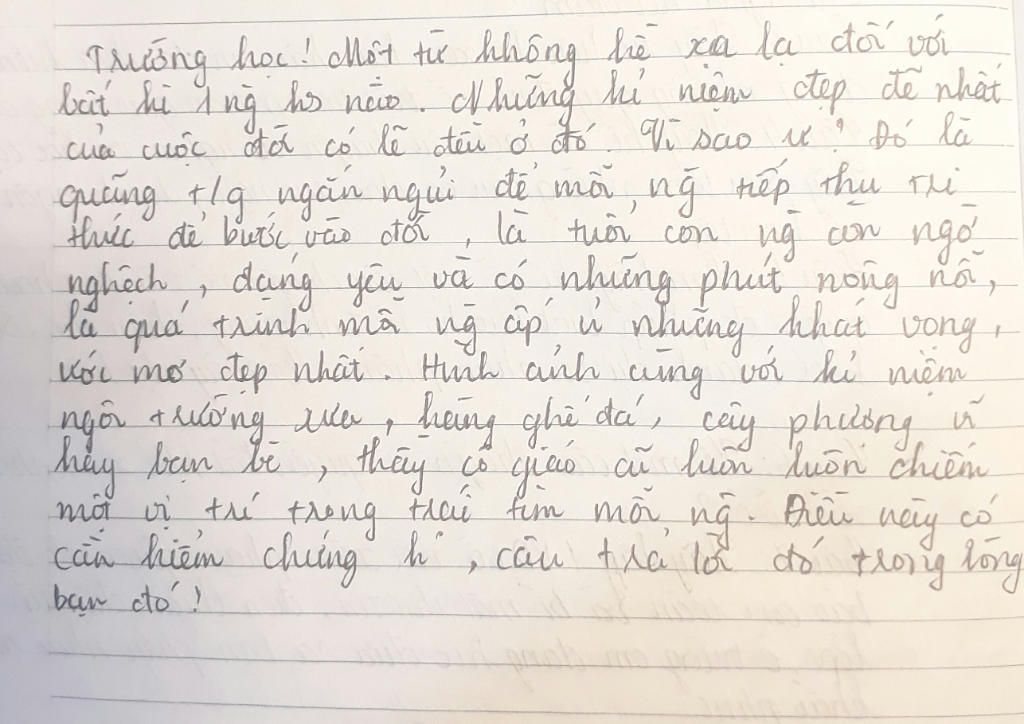 Trường học! Một từ không hề xa lạ đối với
bất kì 1 ng hs nào. Những kỉ niệm đẹp đẽ nhất
của cuộc đời có lẽ đều ở đó. Vì sao ư? Đó là
quãng t/g ngắn ngủi để mỗi ng̃ tiếp thu tri
thức để bước vào đời, là tuổi con ng̃ còn ngờ
nghệch, đáng yêu và có những phút nông nổi,
là quá trình mà ng̃ ấp ủ những khát vọng,
ước mơ đẹp nhất. Hình ảnh cùng với kỉ niệm
ngôi trường xưa, hàng ghế đá, cây phượng vĩ
hay bạn bè, thầy cô giáo cũ luôn luôn chiếm
một vị trí trong trái tim mỗi ng̃. Điều này có
cần kiểm chứng k, câu trả lời đó trong lòng
bạn đó!